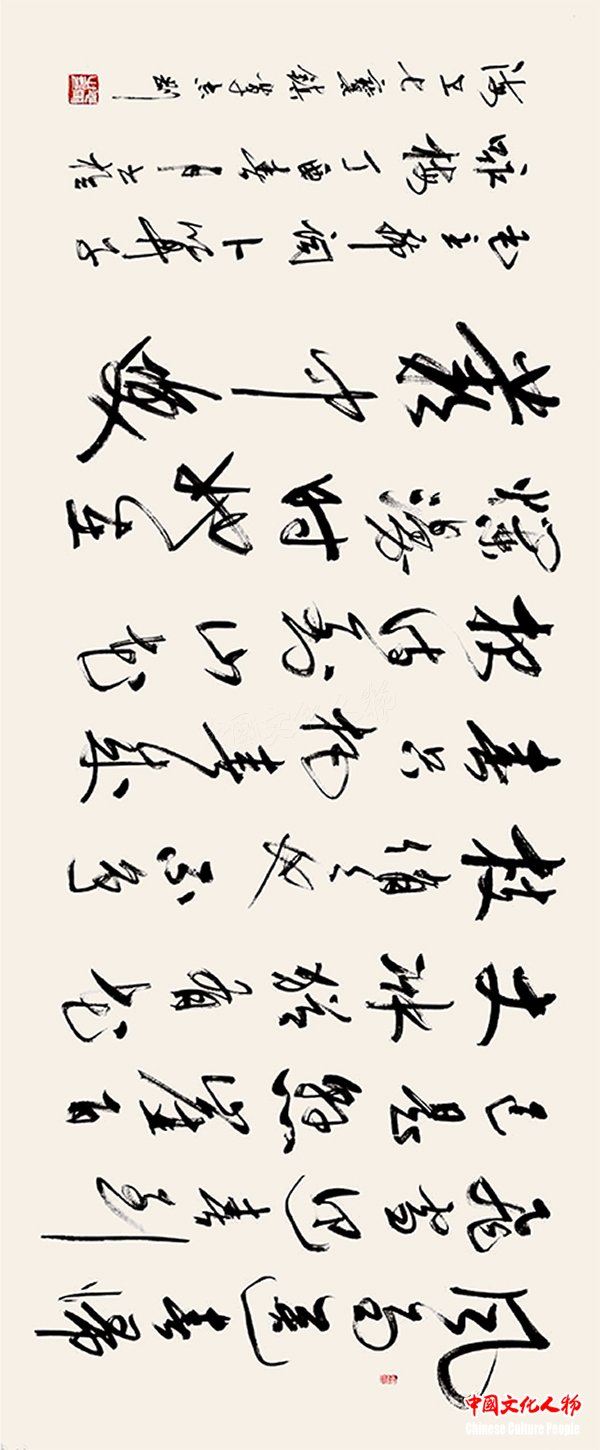 风雨送春歸
飛雪迎春到
已是懸崖百
丈冰猶有花
枝俏也不爭
春只把春來
報待到山花
爛漫時她在
叢中笑
毛主席词卜算子
詠梅丁酉春月
海上七寶鎮
中國文化人物
Chinese Culture People